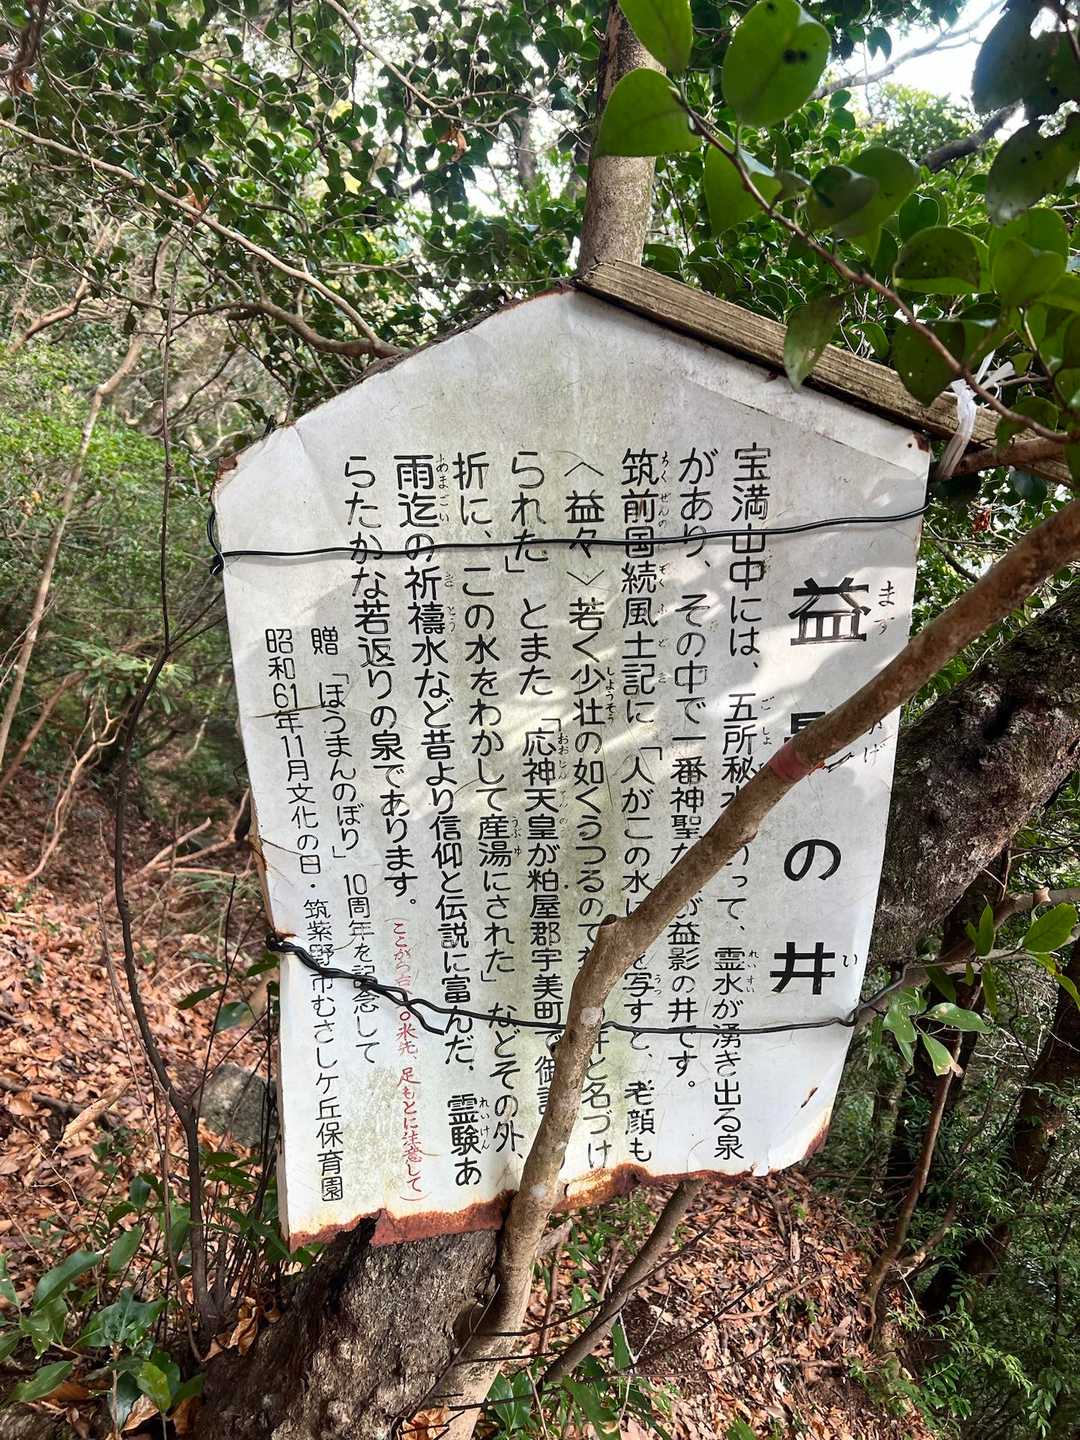 益影の井
宝満山中には、五所秘水といって、霊水が湧き出る泉
があり、その中で一番神聖なが益影の井です。
筑前国続風土記に「人がこの水にを写すと、老顔も
〈益々〉若く少壮の如くうつるので の井と名づけ
られた」とまた「応神天皇が粕屋郡宇美町で御
折に、この水をわかして産湯にされた」などその外、
雨迄の祈禱水など昔より信仰と伝説に富んだ、霊験あ
らたかな若返りの泉であります。
(ここから 米先、足もとに注意して)
贈「ほうまんのぼり」10周年を記念して
昭和61年11月文化の日・筑紫野市むさしケ丘保育園